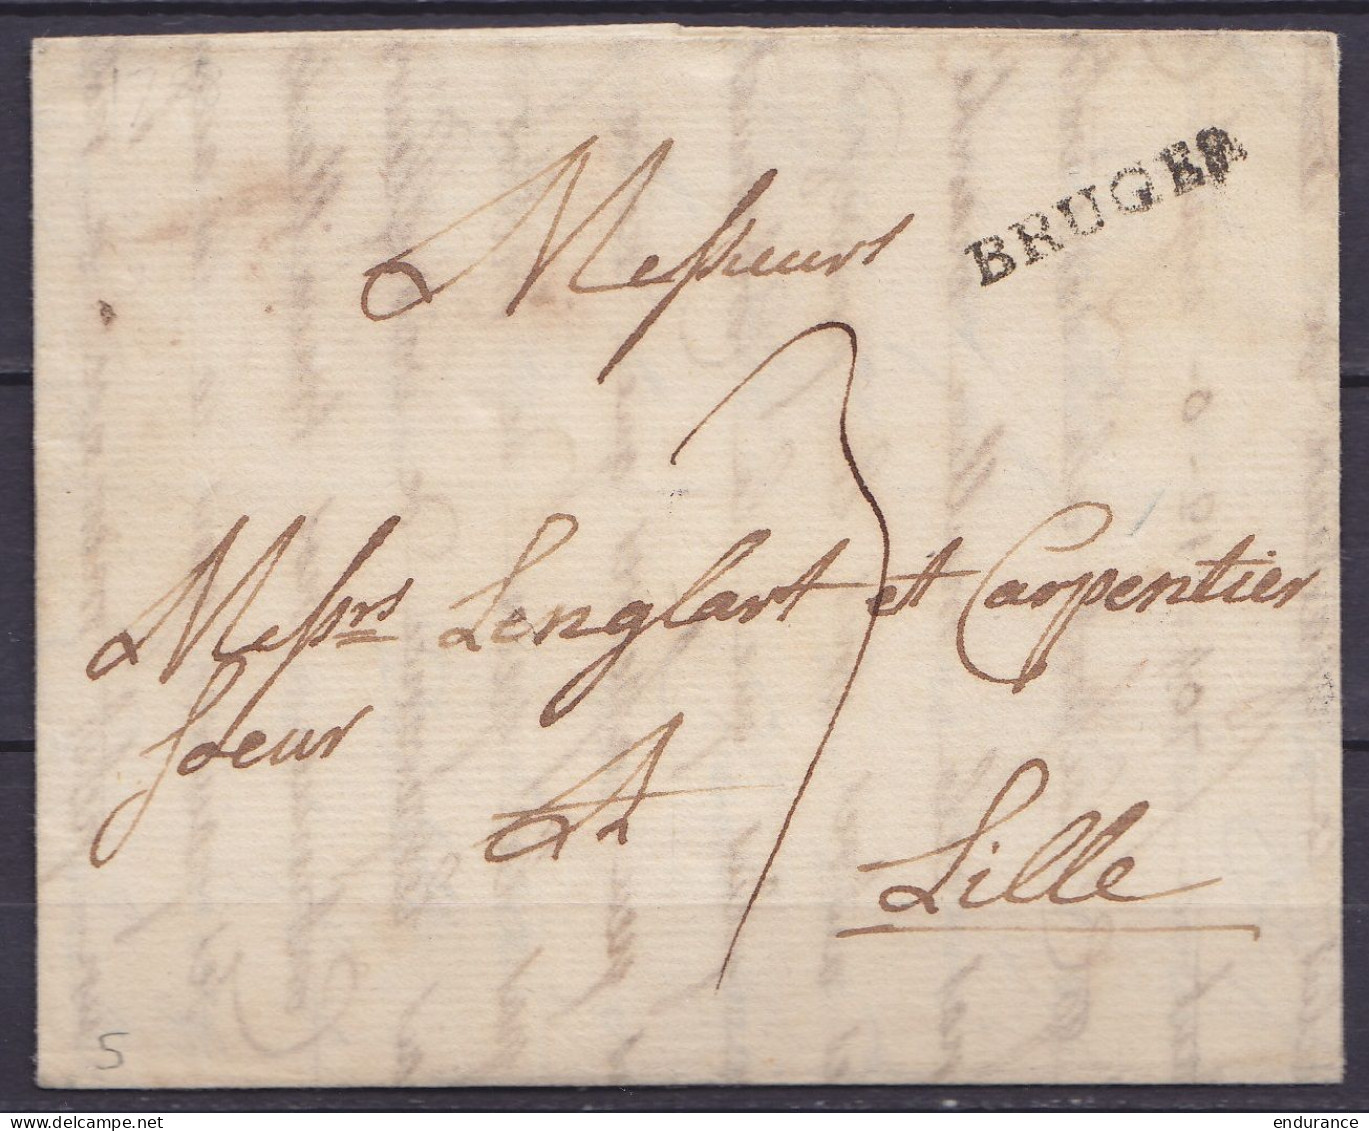 BRUGES
Messieurs
3
Messrs Lenglart et Carpentier
soeur
A
Lille
5
endurance